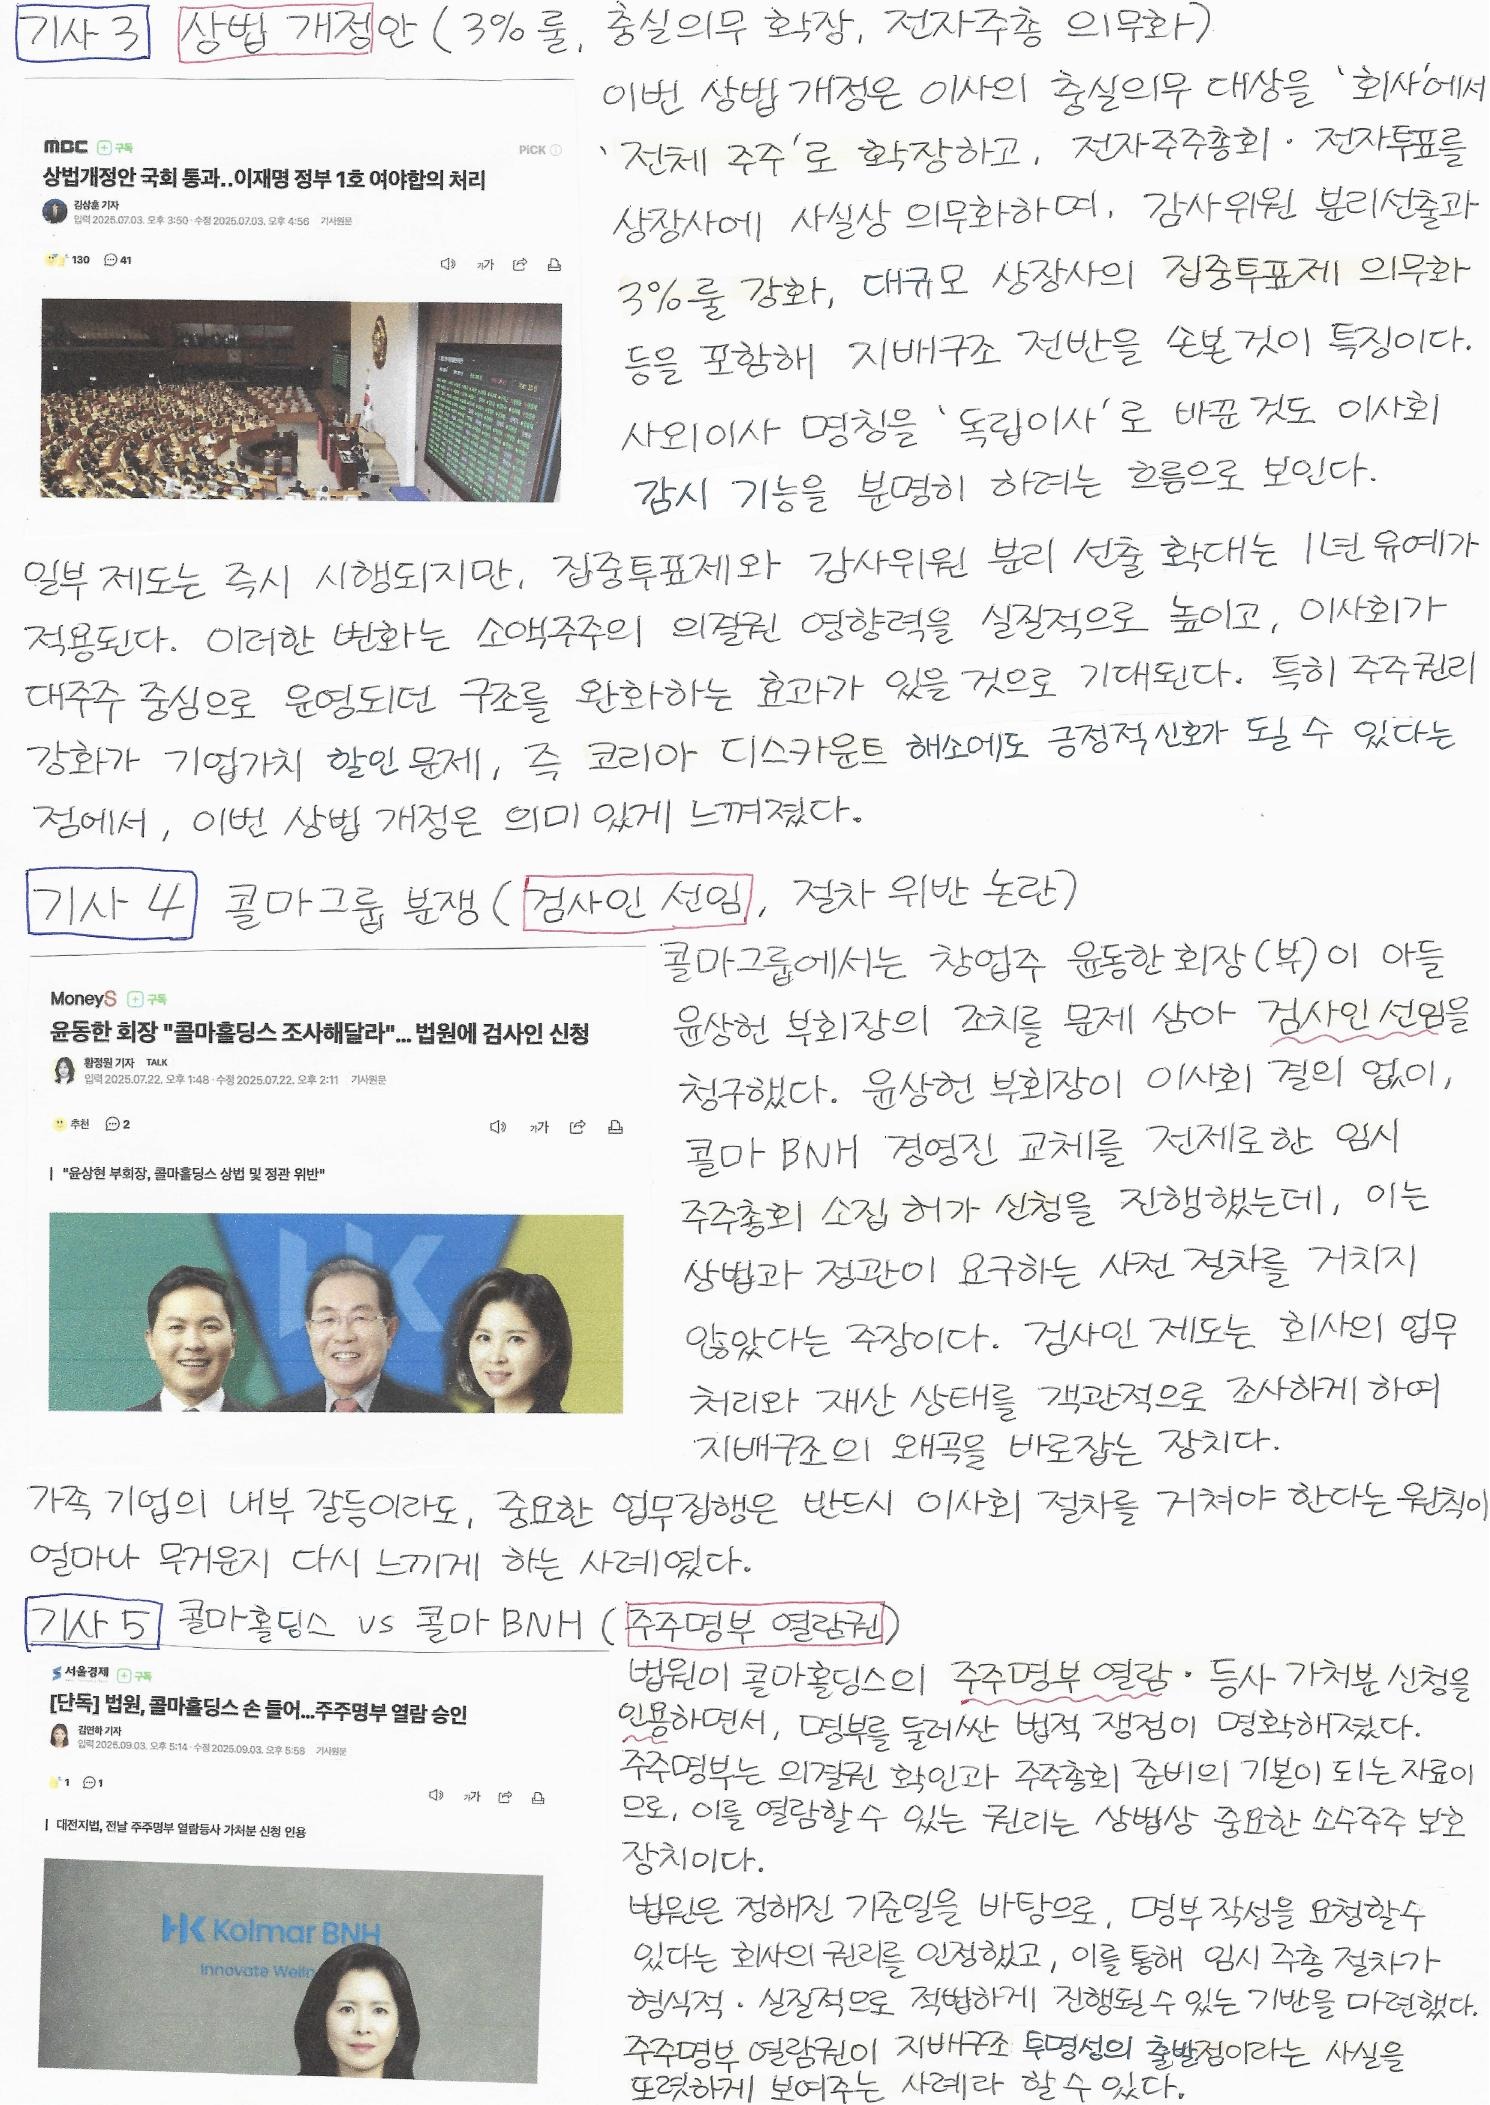 기사 3 상법 개정안 (3%룰, 충실의무 확장, 전자주총 의무화)
MBC 구독
PiCK
상법개정안 국회 통과..이재명 정부 1호 여야합의 처리
김상훈 기자
입력 2025.07.03. 오후 3:50 · 수정 2025.07.03. 오후 4:56 기사원문
130 41
가가
이번 상법 개정은 이사의 충실의무 대상을 '회사'에서
'전체 주주'로 확장하고, 전자주주총회 · 전자투표를
상장사에 사실상 의무화하며, 감사위원 분리선출과
3%룰 강화, 대규모 상장사의 집중투표제 의무화
등을 포함해 지배구조 전반을 손본 것이 특징이다.
사외이사 명칭을 '독립이사'로 바꾼 것도 이사회
감시 기능을 분명히 하려는 흐름으로 보인다.
일부 제도는 즉시 시행되지만, 집중투표제와 감사위원 분리 선출 확대는 1년 유예가
적용된다. 이러한 변화는 소액주주의 의결권 영향력을 실질적으로 높이고, 이사회가
대주주 중심으로 운영되던 구조를 완화하는 효과가 있을 것으로 기대된다. 특히 주주권리
강화가 기업가치 할인 문제, 즉 코리아 디스카운트 해소에도 긍정적 신호가 될 수 있다는
점에서, 이번 상법 개정은 의미 있게 느껴졌다.
기사 4 콜마그룹 분쟁 (검사인 선임, 절차 위반 논란)
MoneyS 구독
윤동한 회장 "콜마홀딩스 조사해달라"... 법원에 검사인 신청
황정원 기자 TALK
입력 2025.07.22. 오후 1:48 · 수정 2025.07.22. 오후 2:11 기사원문
추천 2
가가
"윤상현 부회장, 콜마홀딩스 상법 및 정관 위반"
콜마그룹에서는 창업주 윤동한 회장(부)이 아들
윤상현 부회장의 조치를 문제 삼아 검사인 선임을
청구했다. 윤상현 부회장이 이사회 결의 없이,
콜마 BNH 경영진 교체를 전제로한 임시
주주총회 소집 허가 신청을 진행했는데, 이는
상법과 정관이 요구하는 사전 절차를 거치지
않았다는 주장이다. 검사인 제도는 회사의 업무
처리와 재산 상태를 객관적으로 조사하게 하여
지배구조의 왜곡을 바로잡는 장치다.
가족 기업의 내부 갈등이라도, 중요한 업무집행은 반드시 이사회 절차를 거쳐야 한다는 원칙이
얼마나 무거운지 다시 느끼게 하는 사례였다.
기사 5 콜마홀딩스 vs 콜마 BNH (주주명부 열람권)
서울경제 구독
[단독] 법원, 콜마홀딩스 손 들어...주주명부 열람 승인
김연하 기자
입력 2025.09.03. 오후 5:14 · 수정 2025.09.03. 오후 5:58 기사원문
1 1
가가
대전지법, 전날 주주명부 열람등사 가처분 신청 인용
HK Kolmar BNH
Innovate Welln
법원이 콜마홀딩스의 주주명부 열람 · 등사 가처분 신청을
인용하면서, 명부를 둘러싼 법적 쟁점이 명확해졌다.
주주명부는 의결권 확인과 주주총회 준비의 기본이 되는 자료이
므로, 이를 열람할 수 있는 권리는 상법상 중요한 소수주주 보호
장치이다.
법원은 정해진 기준일을 바탕으로, 명부 작성을 요청할 수
있다는 회사의 권리를 인정했고, 이를 통해 임시 주총 절차가
형식적 · 실질적으로 적법하게 진행될 수 있는 기반을 마련했다.
주주명부 열람권이 지배구조 투명성의 출발점이라는 사실을
또렷하게 보여주는 사례라 할 수 있다.